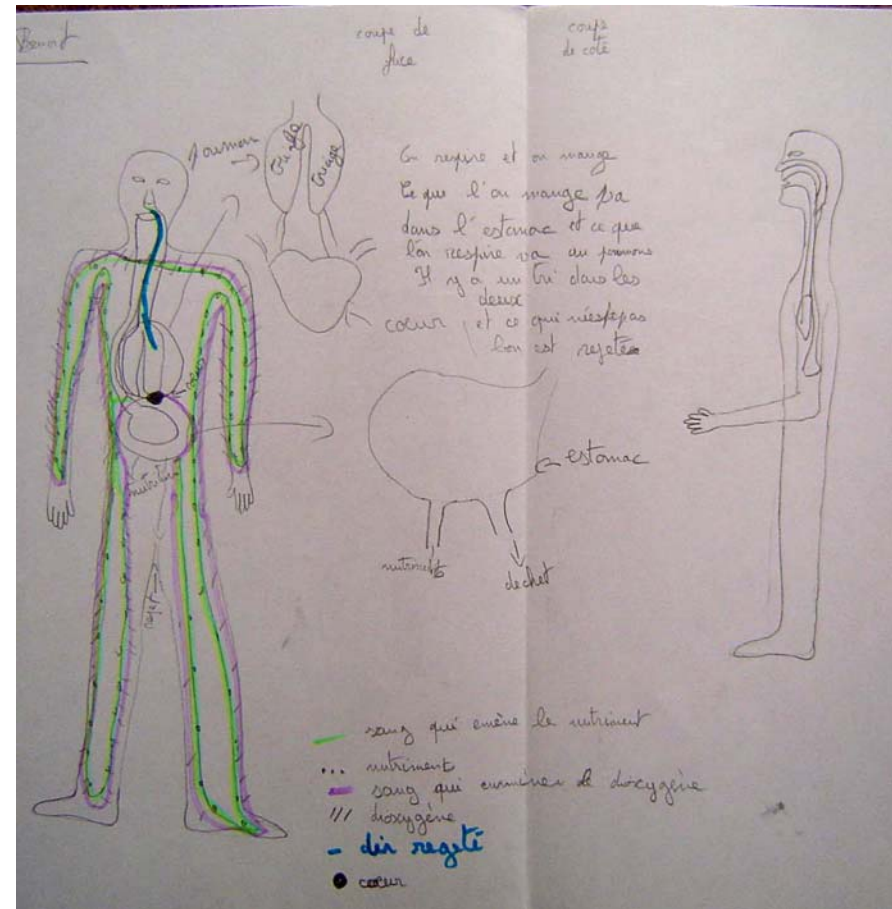 Benoit
coupe de
face
coupe
de coté
poumon
triage
triage
On respire et on mange
Ce que l'on mange va
dans l'estomac et ce que
l'on respire va au poumons
Il y a un tri dans les
deux
et ce qui
bon est rejeté
coeur
coeur
estomac
nutriment
rejet
nutriments
dechet
sang qui emène le nutriment
... nutriment
sang qui le dioxygène
/// dioxygène
- air regeté
coeur